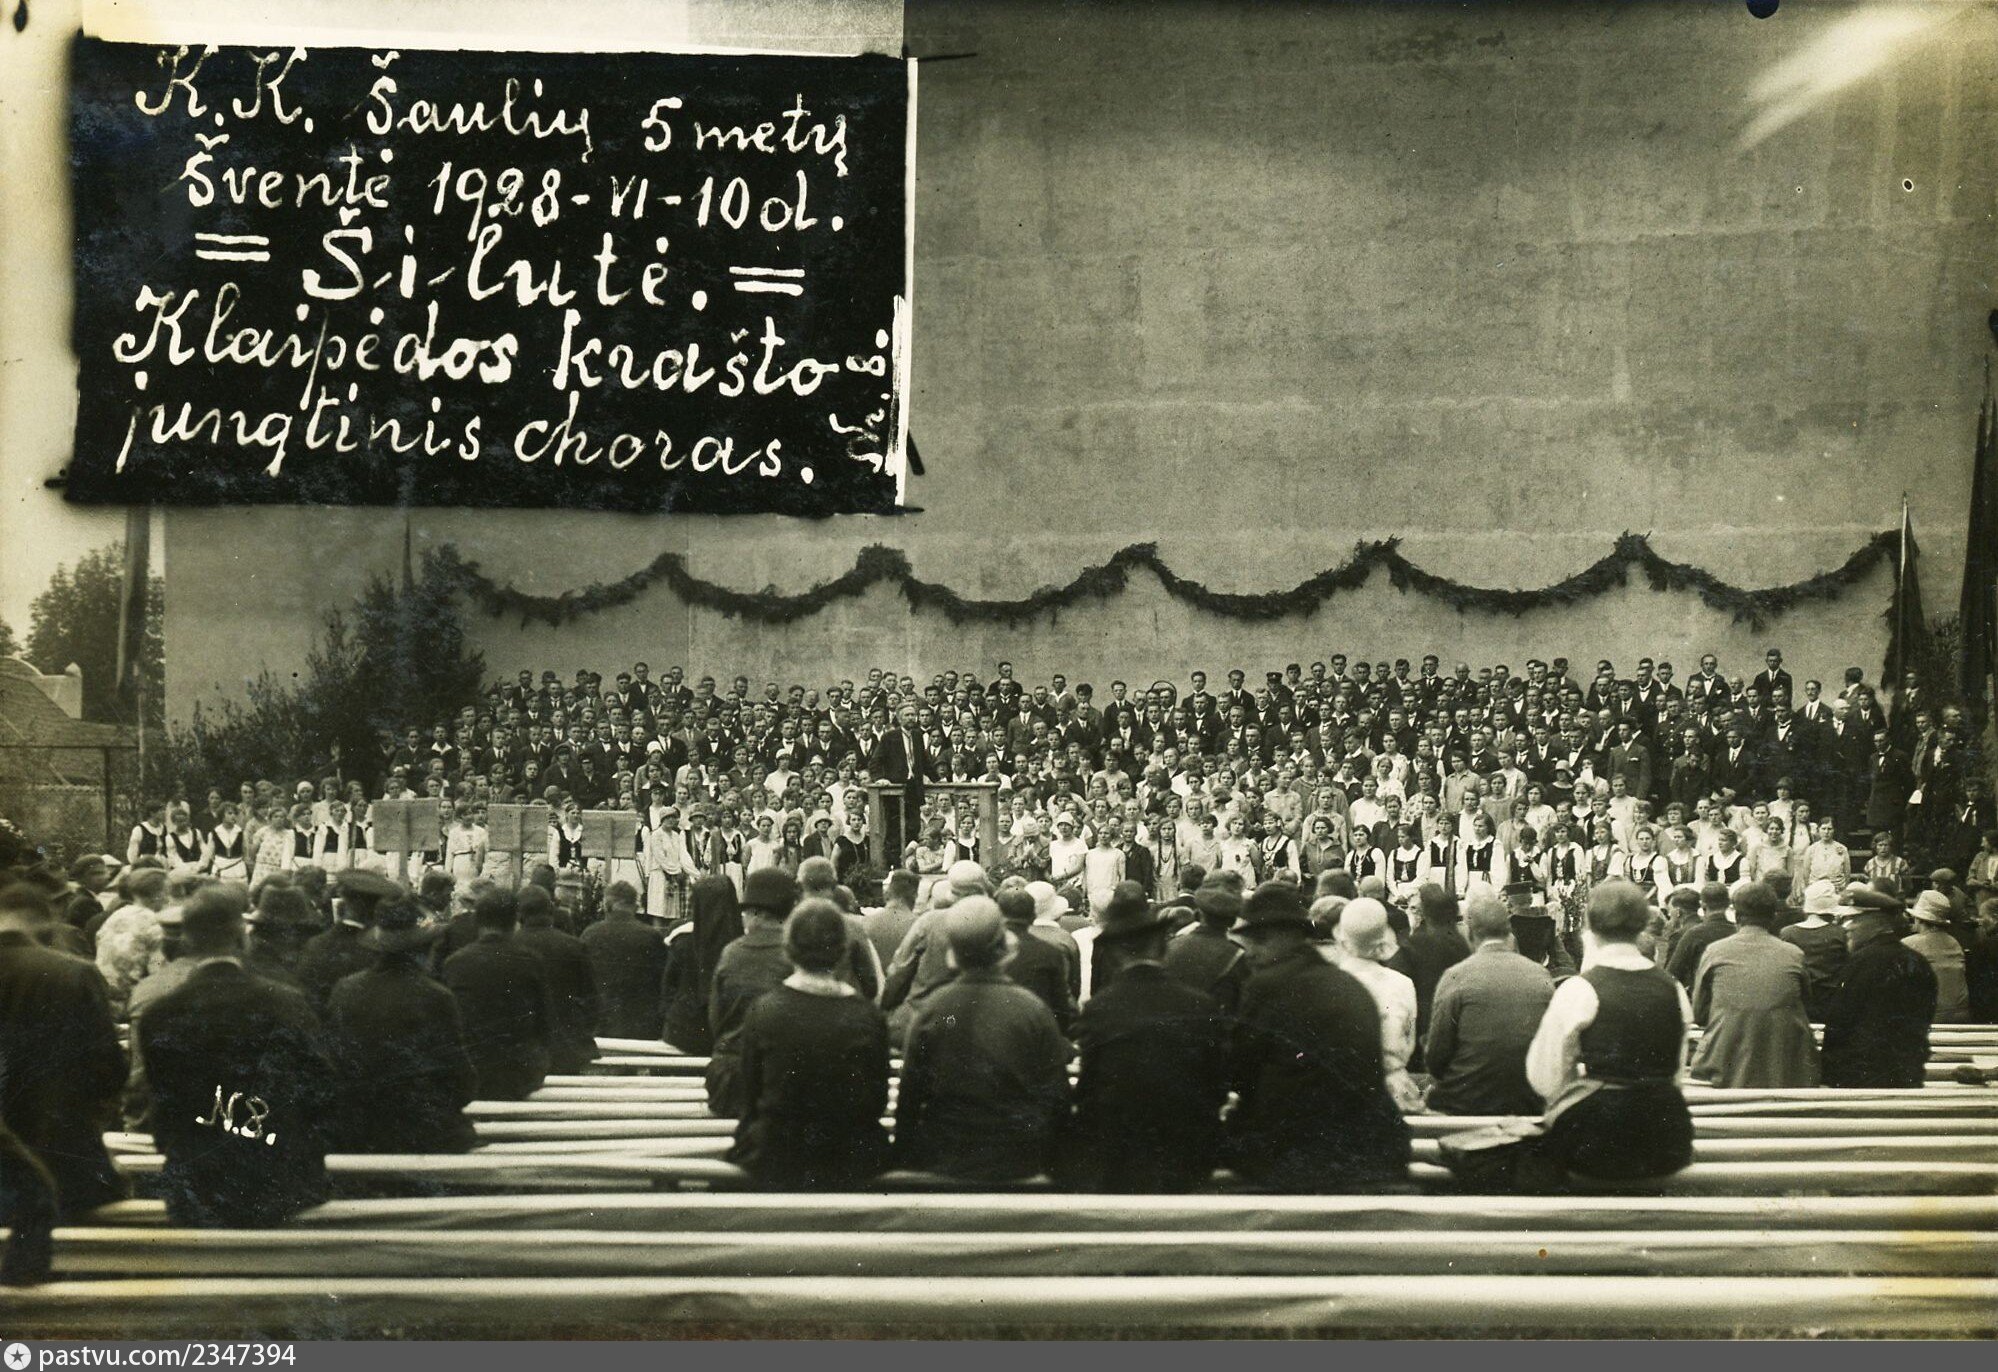 K. K. Šaulių 5 metų
šventė 1928-VI-10 d.
= Šilutė. =
Klaipėdos krašto
jungtinis choras.
N.B.
pastvu.com/2347394